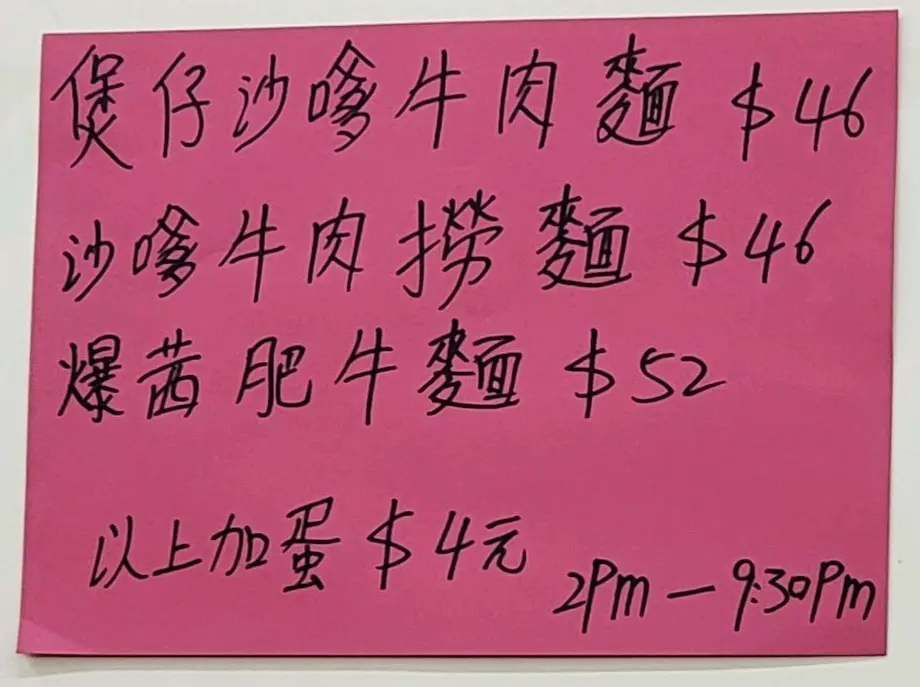 煲仔沙嗲牛肉麵 $46
沙嗲牛肉撈麵 $46
爆茜肥牛麵 $52
以上加蛋 $4元
2Pm — 9:30Pm